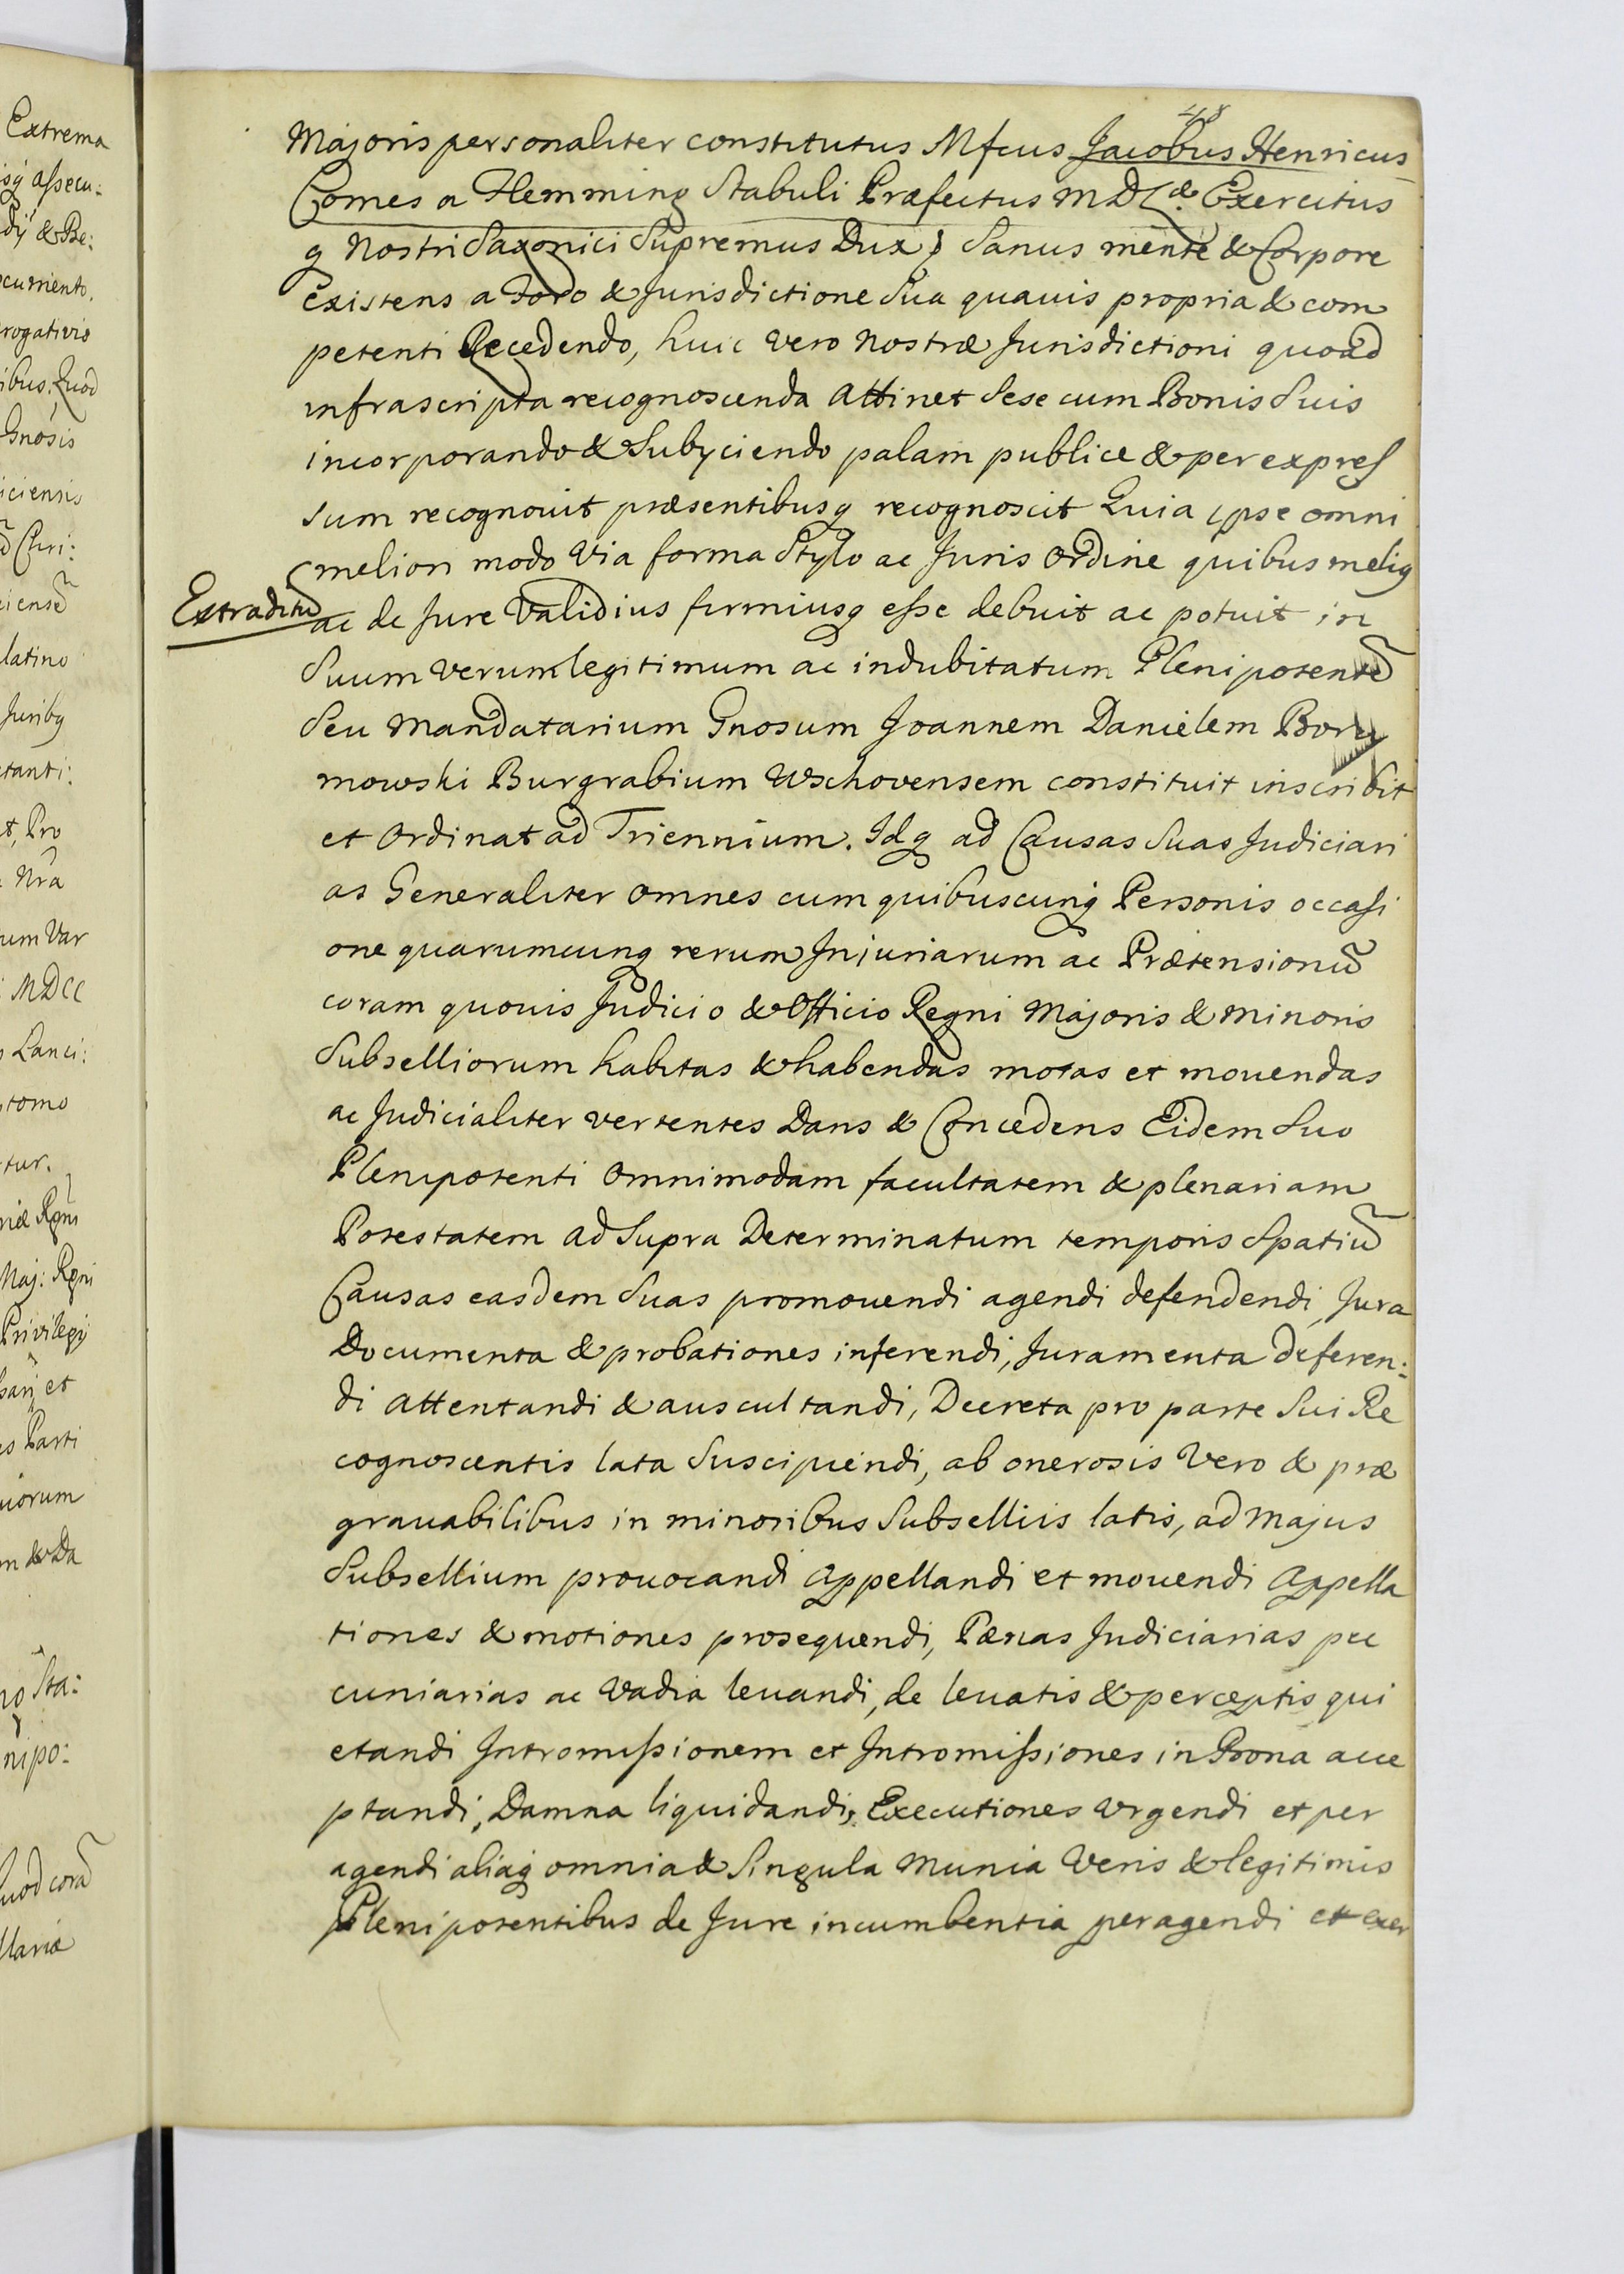 48
Majoris personaliter constitutus Mfcus Jacobus Henricus
Comes a Flemming Stabuli Præfectus M D L & Exercitus
q Nostri Saxonici Supremus Dux; Sanus mente & Corpore
existens a Foro & Jurisdictione Sua quavis propria & com
petenti Recedendo, huic vero nostræ Jurisdictioni quoad
infrascripta recognoscenda attinet Sese cum Bonis Suis
incorporando & Subyciendo palam publice & per expres
sum recognovit præsentibusq recognoscit Quia ipse omni
meliori modo Via forma Stylo ac Juris Ordine quibus meliq
Extraditũ
ac de Jure Validius firmiusq esse debuit ac potuit in
Suum verum legitimum ac indubitatum Plenipotentẽ
Seu Mandatarium Gnosum Joannem Danielem Bory
mowski Burgrabium Wschovensem constituit inscribit
et Ordinat ad Triennium. Idq ad Causas Suas Judiciari
as Generaliter omnes cum quibuscunq Personis occasi
one quarumcunq rerum Injuriarum ac Prætensionũ
coram quovis Judicio & Officio Regni Majoris & Minoris
Subselliorum habitas & habendas motas et movendas
ac Judicialiter vertentes Dans & Concedens Eidem Suo
Plenipotenti Omnimodam facultatem & plenariam
Potestatem ad Supra Determinatum temporis Spatiũ
Causas easdem Suas promovendi agendi defendendi, Jura
Documenta & probationes inferendi, Juramenta deferen:
di attentandi & auscultandi, Decreta pro parte Sui Re
cognoscentis lata Suscipiendi, ab onerosis Vero & præ
gravabilibus in minoribus Subselliis latis, ad Majus
Subsellium provocandi Appellandi et movendi Appella
tiones & motiones prosequendi, Pænas Judiciarias pec
cuniarias ac Vadia levandi, de levatis & perceptis qui
etandi Intromissionem et Intromissiones in Bona acce
ptandi, Damna liquidandi, Executiones Urgendi et per
agendi aliaq omnia & Singula Munia Veris & legitimis
Plenipotentibus de Jure incumbentia peragendi et exer